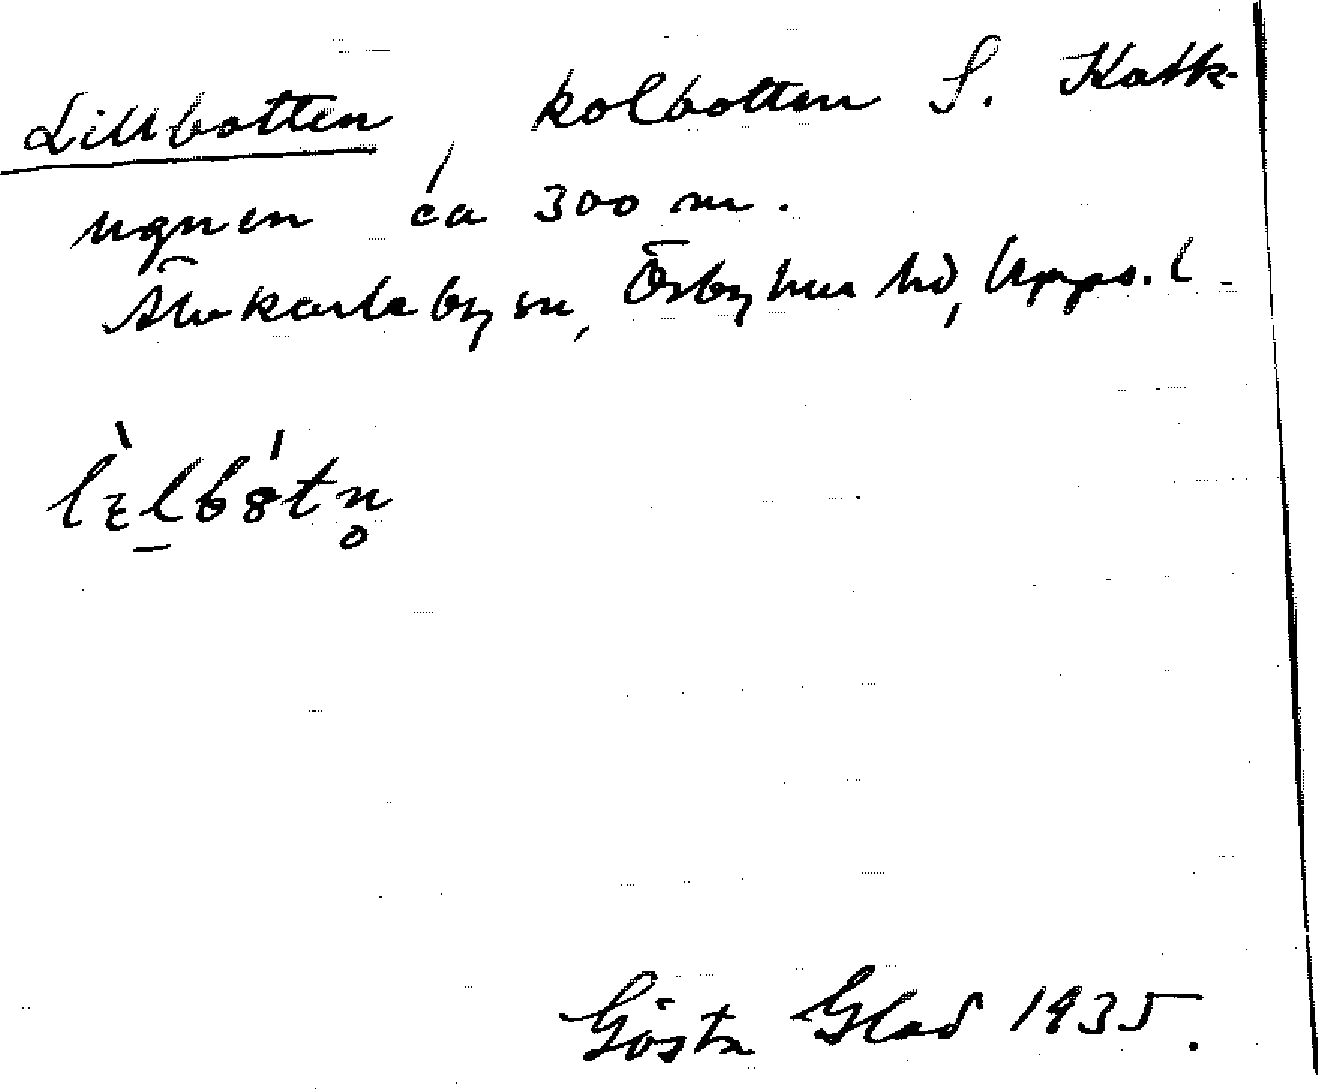 Lillbotten, kolbotten S. Kalk-
ugnen ca 300 m.
Älvkarleby sn, Örbyhus hd, Upps. l.
lìlbótn̥
Gösta Glad 1935.